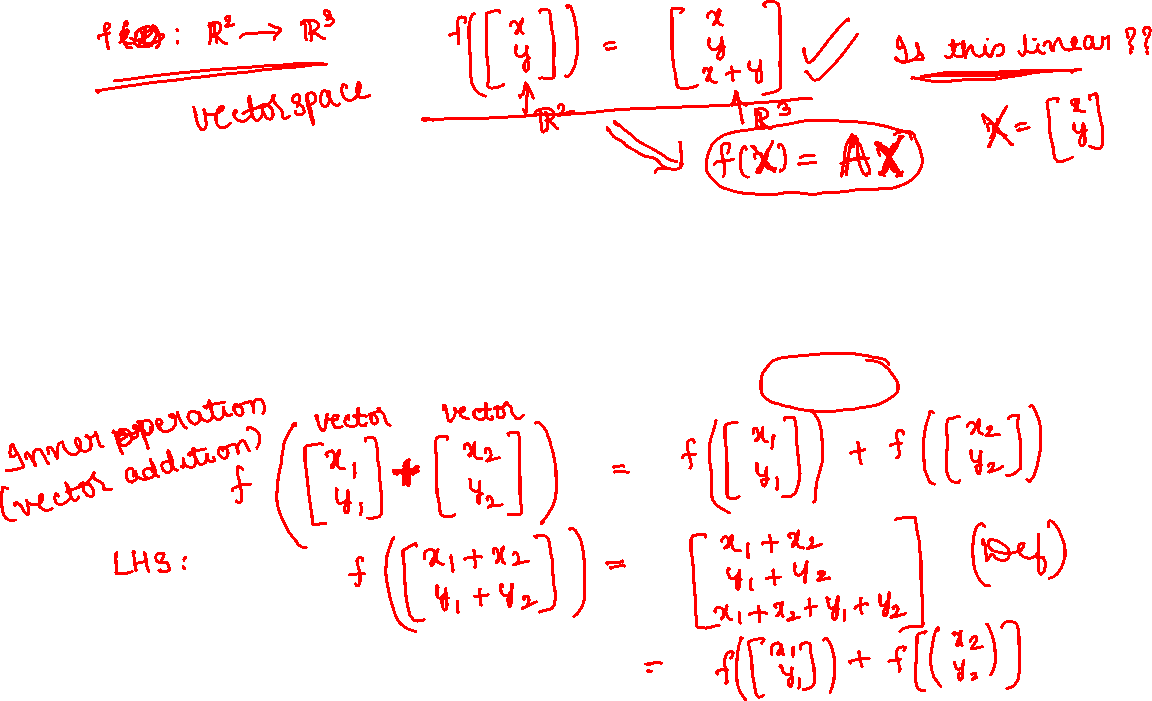 f : ℝ² → ℝ³
vector space
f([x y]) = [x y x+y]
ℝ² ℝ³
Is this linear ??
X = [x y]
f(X) = AX
Inner operation
(vector addition)
vector vector
f([x₁ y₁] + [x₂ y₂]) = f([x₁ y₁]) + f([x₂ y₂])
LHS: f([x₁+x₂ y₁+y₂]) = [x₁+x₂ y₁+y₂ x₁+x₂+y₁+y₂] (Def)
= f([x₁ y₁]) + f[(x₂ y₂)]